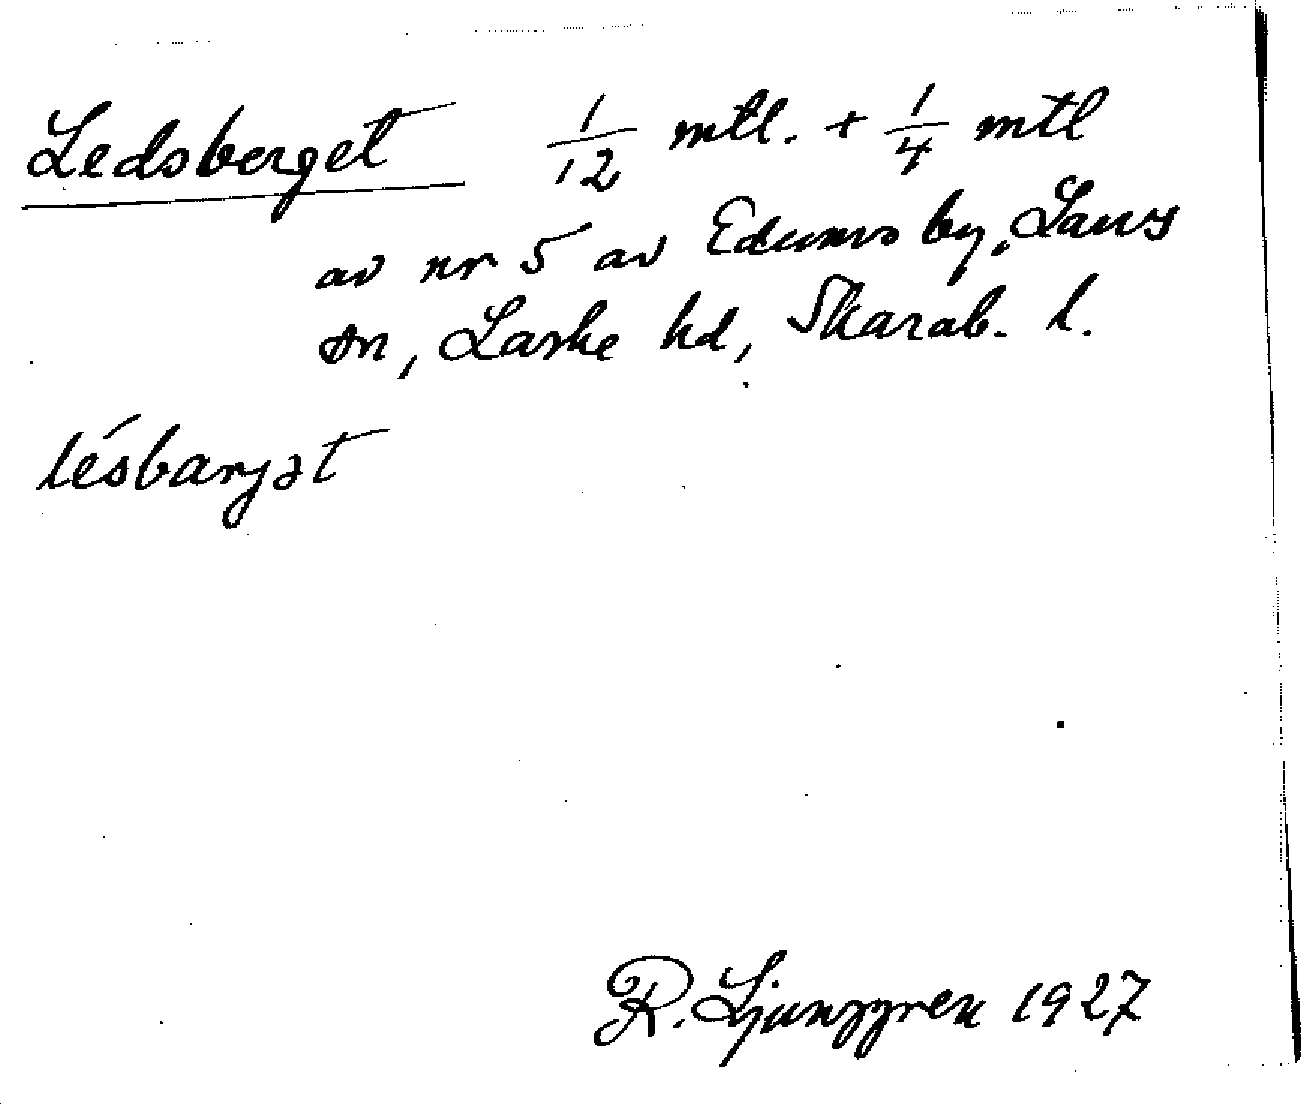 Ledsberget 1/12 mtl. + 1/4 mtl
av nr 5 av Edums by, Lavs
sn, Laske hd, Skarab. l.
lésbarjət
R. Ljunggren 1927